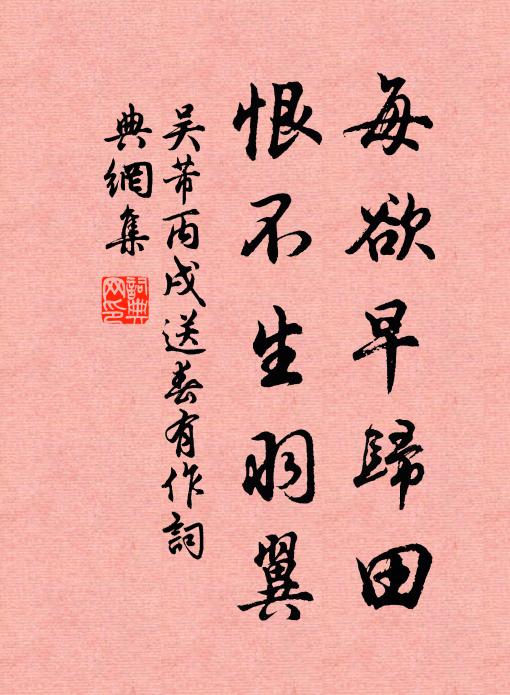 每欲早歸田
恨不生羽翼
吴芾丙戌送春有作詞
典網集
詞典網印